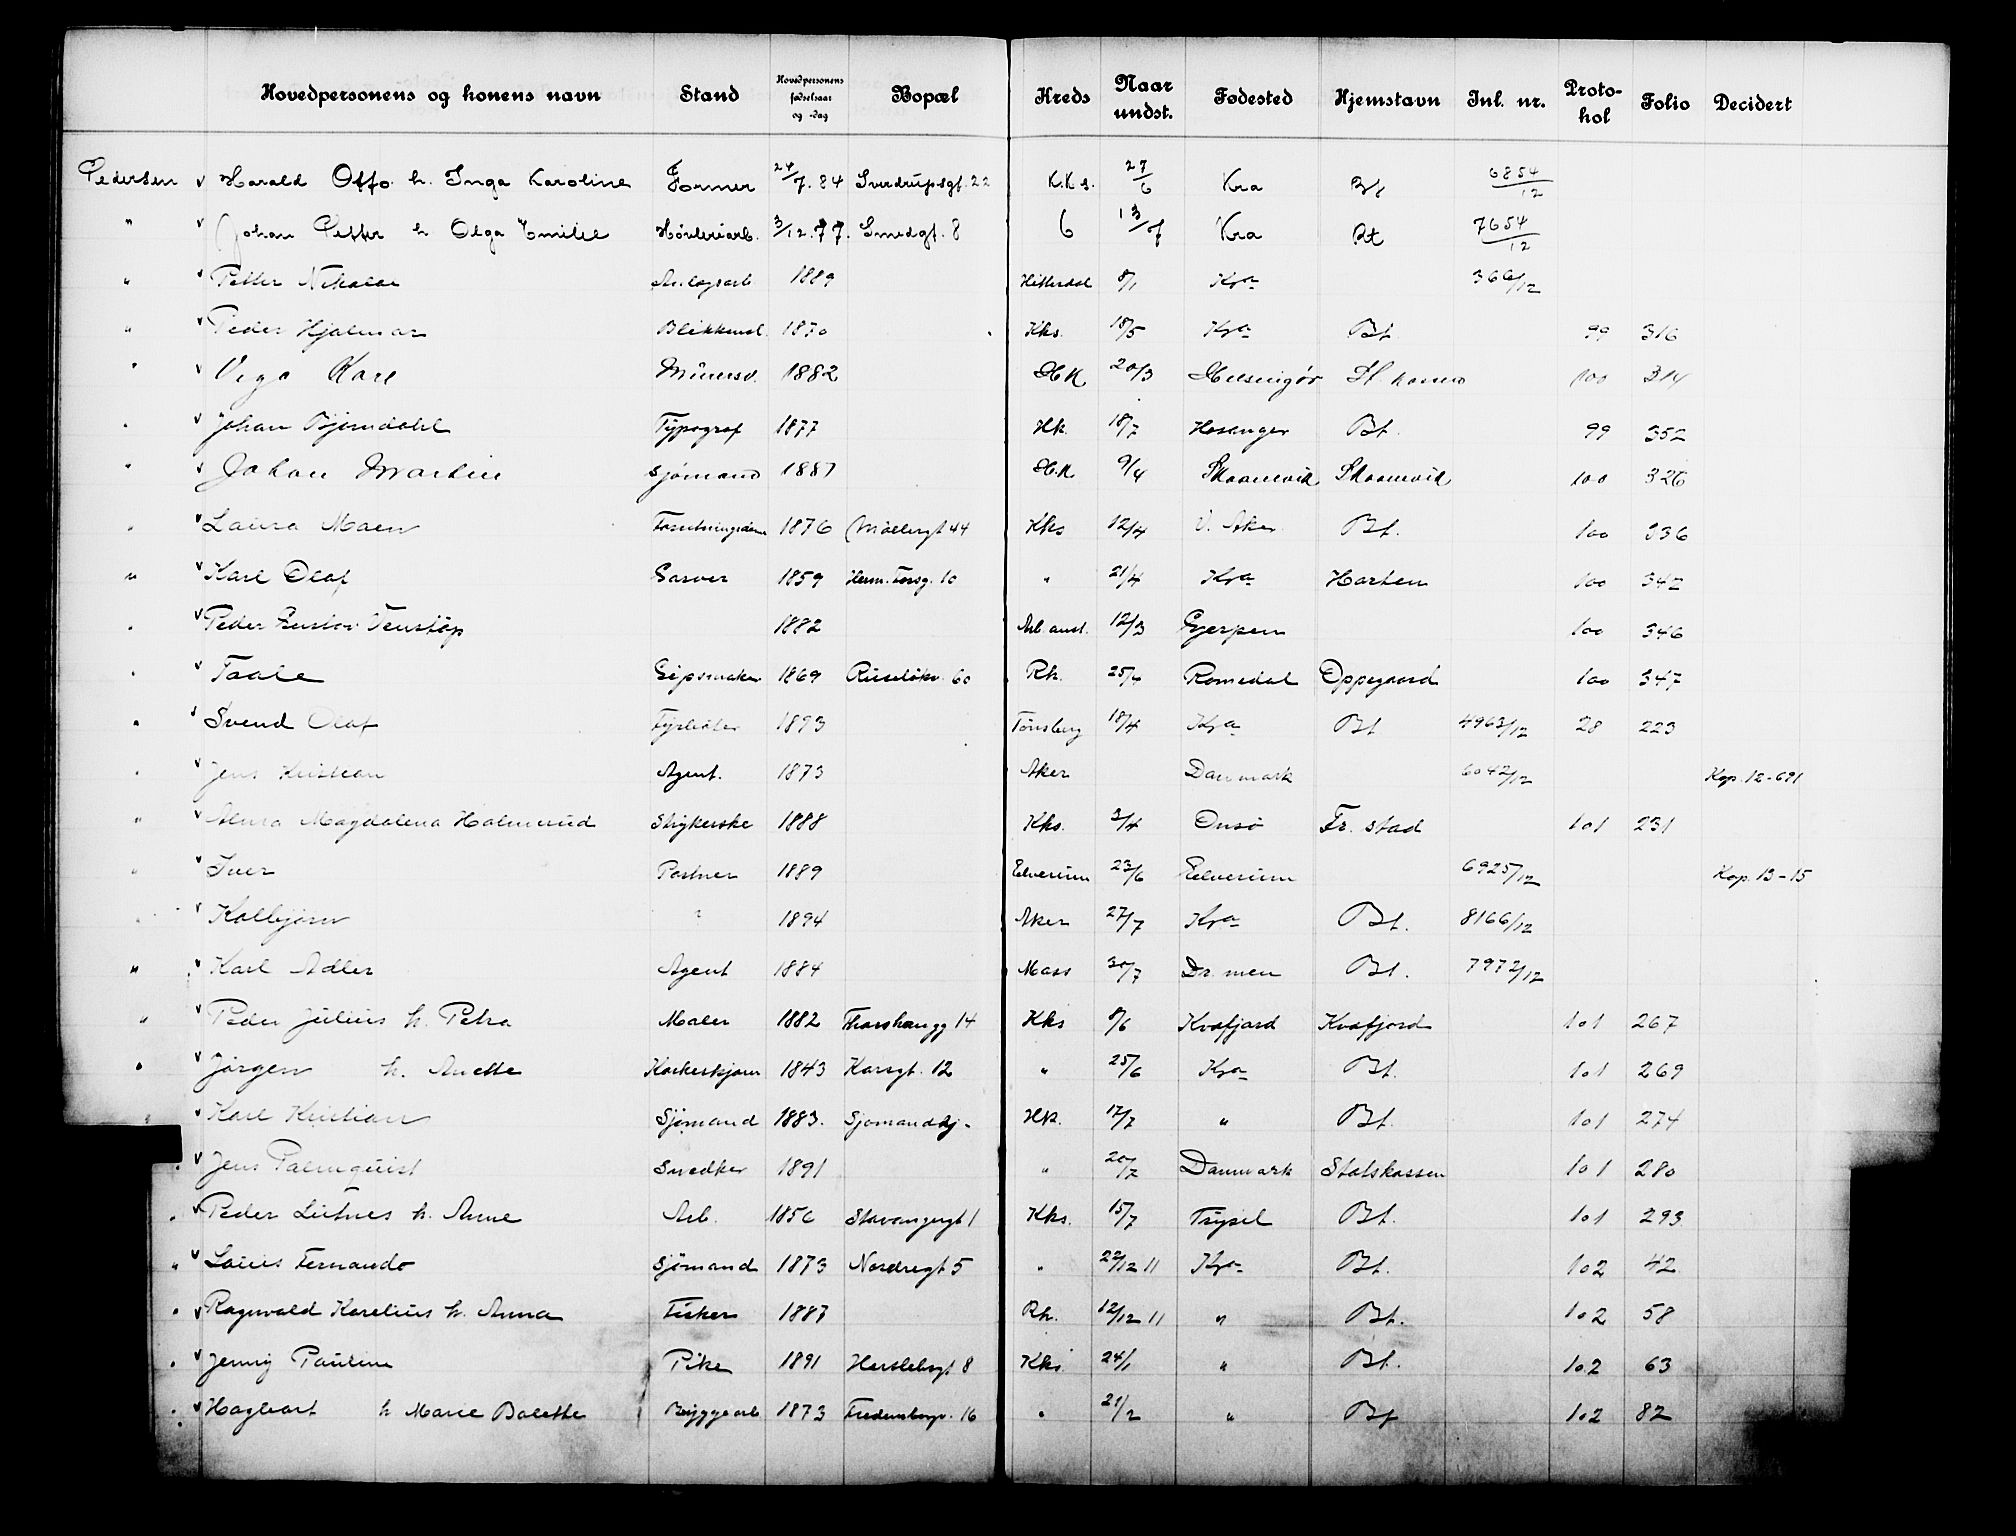 Hovedpersonens og konens navn Stand Hovedpersonens fødselsaar og -dag Bopæl Kreds Naar undst. Fødested Hjemstavn Inl. nr. Protokol Folio Decidert
Pedersen v Harald Otto h. Inga Karoline Former 24/7.84 Sverdrupsgt. 22 K.k.s. 27/6 Kra Bt 6854/12
" v Johan Petter h Olga Emilie Høvleriarb. 3/12.77. Smedgt. 8 6 13/7 Kra Bt 7654/12
" v Petter Nikolai 1889 Hitterdal 8/1 Kra 366/12
" v Peder Hjalmar Blikkensl. 1870 Kks. 18/5 Kra Bt. 99 316
" v Vigo Karl Murersv. 1882 HK 20/3 Helsingør St. kassen 100 314
" v Johan Bjørndahl Typograf 1877 Hk. 18/7 Hosanger Bt. 99 352
" v Johan Martin Sjømand 1887 HK 9/4 Skaanevik Skaanevik 100 326
" v Laura Maen 1876 Møllergt 44 Kks 12/4 V. Aker Bt. 100 336
" v Karl Olaf Garver 1859 Herm. Forsg. 10 " 21/4 Kra Horten 100 342
" v Peder Gustav Tenstøp 1882 Arb. anst. 12/3 Gjerpen 100 346
" v Taale Gipsmaker 1869 Ruseløkv. 60 Rk. 25/4 Romedal Oppegaard 100 347
" v Svend Olaf Fyrbøter 1893 Tønsberg 18/4 Kra Bt 4963/12 28 223
" v Jens Kristian Agent. 1873 Aker Danmark 6042/12 Kop. 12-691
" v Alma Magdalena Halmrud Strykerske 1888 Kks. 3/4 Onsø Fr. stad 101 231
" v Iver Portner 1889 Elverum 23/6 Elverum 6925/12 Kop 13-15
" v Kolbjørn ? 1894 Aker 27/7 Kra Bt. 8166/12
" v Karl Adler Agent 1884 Moss 30/7 Dr. men Bt. 7972/12
" v Peder Julius h. Petra Maler 1882 Thorshaugg 14 Kks 8/6 Kvæfjord Kvæfjord 101 267
" v Jørgen h. Anette Korkeskjærer 1843 Korsgt. 12 " 25/6 Kra Bt. 101 269
" v Karl Kristian Sjømand 1883. Sjømandshj. Hk. 17/7 " Bt. 101 274
" v Jens Palmquist Snedker 1891 " 20/7 Danmark Statskassen 101 280
" v Peder Lutnes h. Anne Arb. 1856 Stavangergt 1 Kks. 15/7 Trysil Bt. 101 293
" v Louis Fernando Sjømand 1873 Nordregt 5 " 22/12 11 Kra Bt. 102 42
" v Ragnvald Karelius h. Anna Fisker 1887 Rk. 12/12 11 " Bt. 102 58
" v Jenny Pauline Pike 1891 Herslebsgt 8 Kks 24/1 " Bt. 102 63
" v Hagbart h Marie Bolette Bryggearb 1873 Fredensborgv. 16 " 21/2 " Bt 102 82